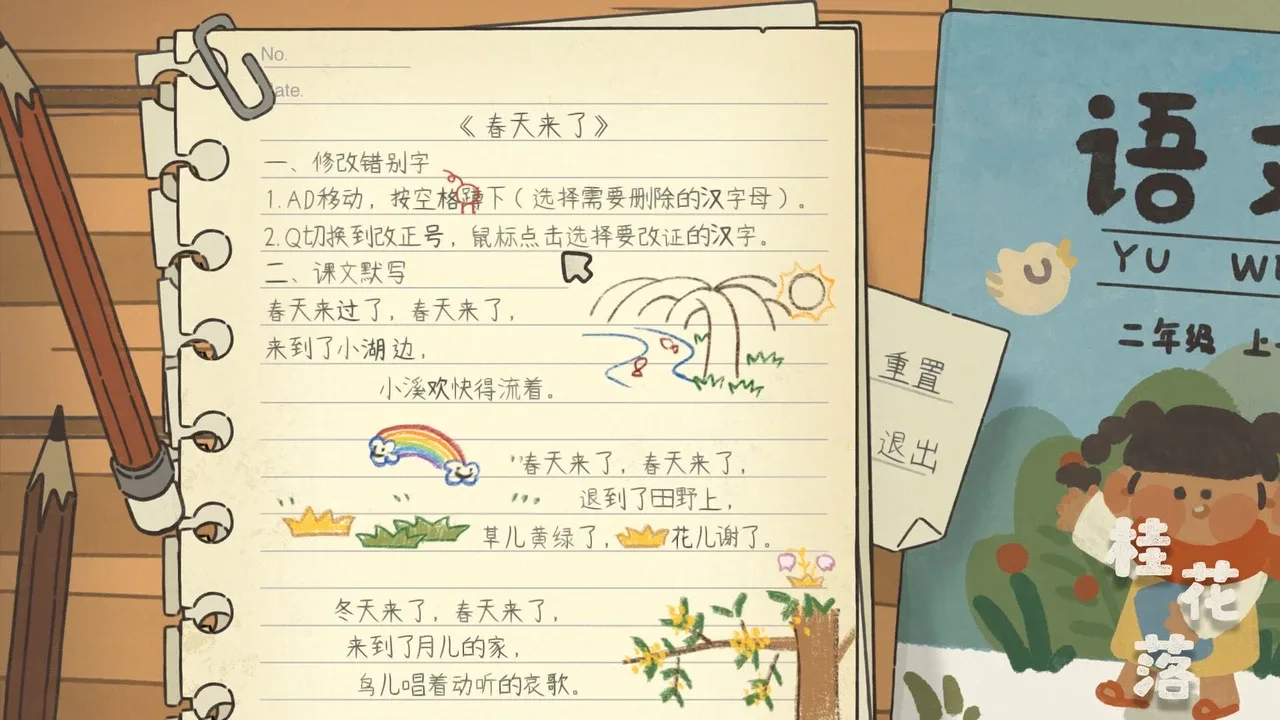 No.
ate.
《春天来了》
一、修改错别字
1.AD移动，按空格蹲下（选择需要删除的汉字母）。
2.Q切换到改正号，鼠标点击选择要改证的汉字。
二、课文默写
春天来过了，春天来了，
来到了小湖边，
小溪欢快得流着。
春天来了，春天来了，
退到了田野上，
草儿黄绿了，花儿谢了。
冬天来了，春天来了，
来到了月儿的家，
鸟儿唱着动听的哀歌。
重置
退出
语文
YU WE
二年级 上
桂花落